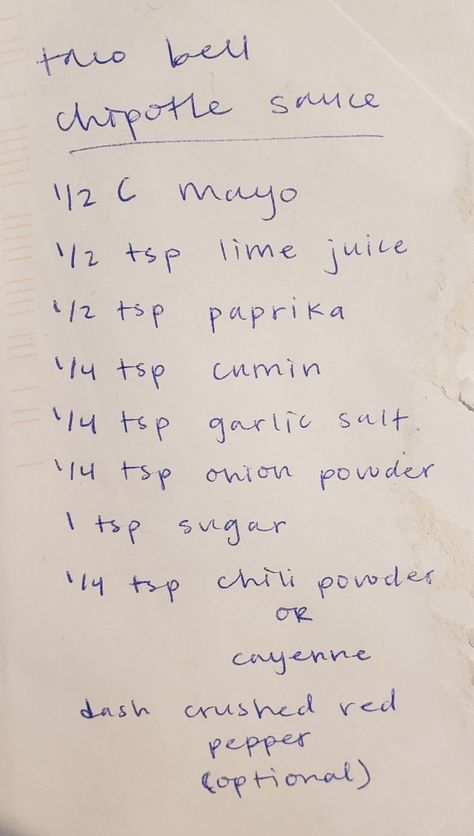 taco bell
chipotle sauce
1/2 C mayo
1/2 tsp lime juice
1/2 tsp paprika
1/4 tsp cumin
1/4 tsp garlic salt
1/4 tsp onion powder
1 tsp sugar
1/4 tsp chili powder
OR
cayenne
dash crushed red
pepper
(optional)